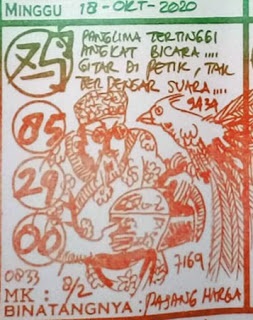 MINGGU 18-OKT-2020
PANGLIMA TERTINGGI
ANGKAT BICARA....
GITAR DI PETIK, TAK
TERDENGAR SUARA....
9434
85
29
00
0833
7169
MK : 8/2
BINATANGNYA : PAJANG HARGA